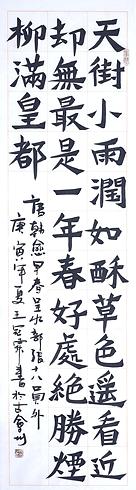 天街小雨潤如酥草色遥看近
却無最是一年春好處絕勝煙
柳滿皇都
唐韓愈早春呈水部張十八員外
庚寅年夏王冠書於古會州